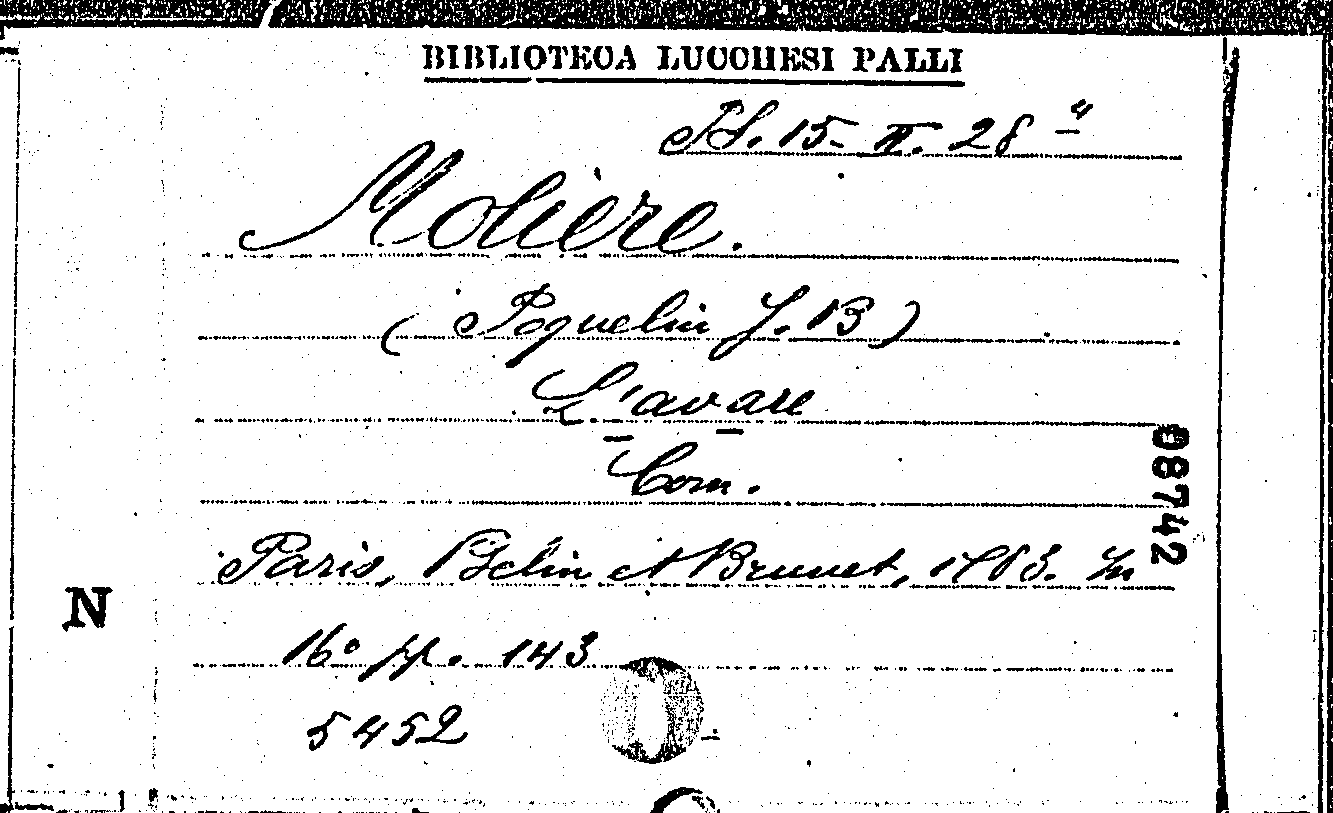 BIBLIOTECA LUCCHESI PALLI
Pl. 15- II. 28 4
Moliere.
( Poquelin J. B )
L'avare
Com.
Paris, Belin et Brunet, In
16º pp. 143
5452
N
08742